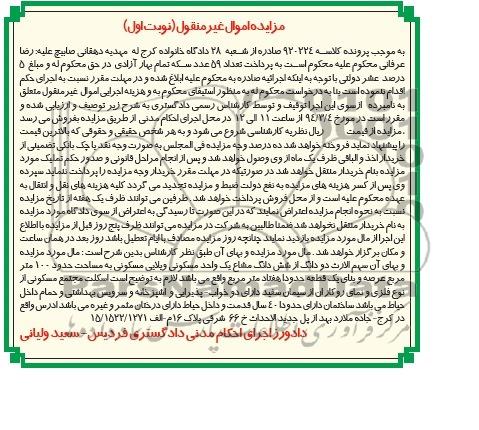 مزایده اموال غیر منقول (نوبت اول)
به موجب پرونده کلاسه ٢٢٤-٩٢ صادره از شعبه ٢٨ دادگاه خانواده کرج له مهدیه دهقانی صایبچ علیه: رضا
عرفانی محکوم علیه محکوم است به پرداخت تعداد ٥٩ عدد سکه تمام بهار آزادی در حق محکوم له و مبلغ ٥
درصد عشر دولتی با توجه به اینکه اجرائیه صادره به محکوم علیه ابلاغ شده و در مهلت مقرر نسبت به اجرای حکم
اقدام ننموده است بنا به درخواست محکوم له به منظور استیفای محکوم به و هزینه اجرایی اموال غیر منقول متعلق
به نامبرده از سوی این اجرا توقیف و توسط کارشناس رسمی دادگستری به شرح زیر توصیف و ارزیابی شده و
مقرر است در مورخ ٩٤/٣/٤ از ساعت ١١ الی ١٢ در محل اجرای احکام مدنی از طریق مزایده بفروش می رسد
. مزایده از قیمت ریال نظریه کارشناسی شروع می شود و به هر شخص حقیقی و حقوقی که بالاترین قیمت
را پیشنهاد نماید فروخته خواهد شد ده درصد وجه مزایده فی المجلس به صورت وجه نقد یا چک بانکی تضمینی از
خریدار اخذ و الباقی ظرف یک ماه از وی وصول خواهد شد و پس از انجام مراحل قانونی و صدور حکم تملیک مورد
مزایده بنام خریدار منتقل خواهد شد در صورتیکه در مهلت مقرر خریدار وجه مزایده را پرداخت ننماید سپرده
وی پس از کسر هزینه های مزایده به نفع دولت ضبط و مزایده تجدید می گردد کلیه هزینه های نقل و انتقال به
عهده محکوم علیه است و از محل فروش پرداخت خواهد شد . طرفین می توانند ظرف یک هفته از تاریخ مزایده
نسبت به نحوه انجام مزایده اعتراض نمایند که در این صورت تا رسیدگی به اعتراض از سوی دادگاه مورد مزایده
به نام خریدار منتقل نخواهد شد ضمنا طالبین به شرکت در مزایده می توانند ظرف پنج روز قبل از مزایده با اطلاع
این اجرا از مال مورد مزایده بازدید نمایند چنانچه روز مزایده مصادف با ایام تعطیل باشد روز بعد در همان ساعت
و مکان برگزار خواهد شد . مال مورد مزایده و بهای آن طبق نظر کارشناس بدین شرح است : مال مورد مزایده
و بهای آن سهم الارث دو دانگ از شش دانگ مشاع یک واحد مسکونی ویلایی مسکونی به مساحت حدود ١٠٠ متر
مربع عرصه و بنای یک قطعه حدودا هفتاد متر مربع واقع می باشد لازم به توضیح است اسکلت مجتمع مسکونی از
نوع فلزی و نمای رو کار آن از سیمان سفید دارای دو خواب ، پذیرایی و آشپزخانه و سرویس بهداشتی و حمام داخل
حیاط می باشد ساختمان دارای حدودا ٤٠ سال قدمت و داخل حیاط دارای درختان مثمر و غیره می باشد ادرس واقع
در کرج - جاده ملارد بهد از پل جدید الاحداث خ ٦٦ شرقی پلاک ١٦م-الف ١٥/١٥٢٢/١٢٧١
دادورز اجرای احکام مدنی دادگستری فردیس - سعید ولیانی